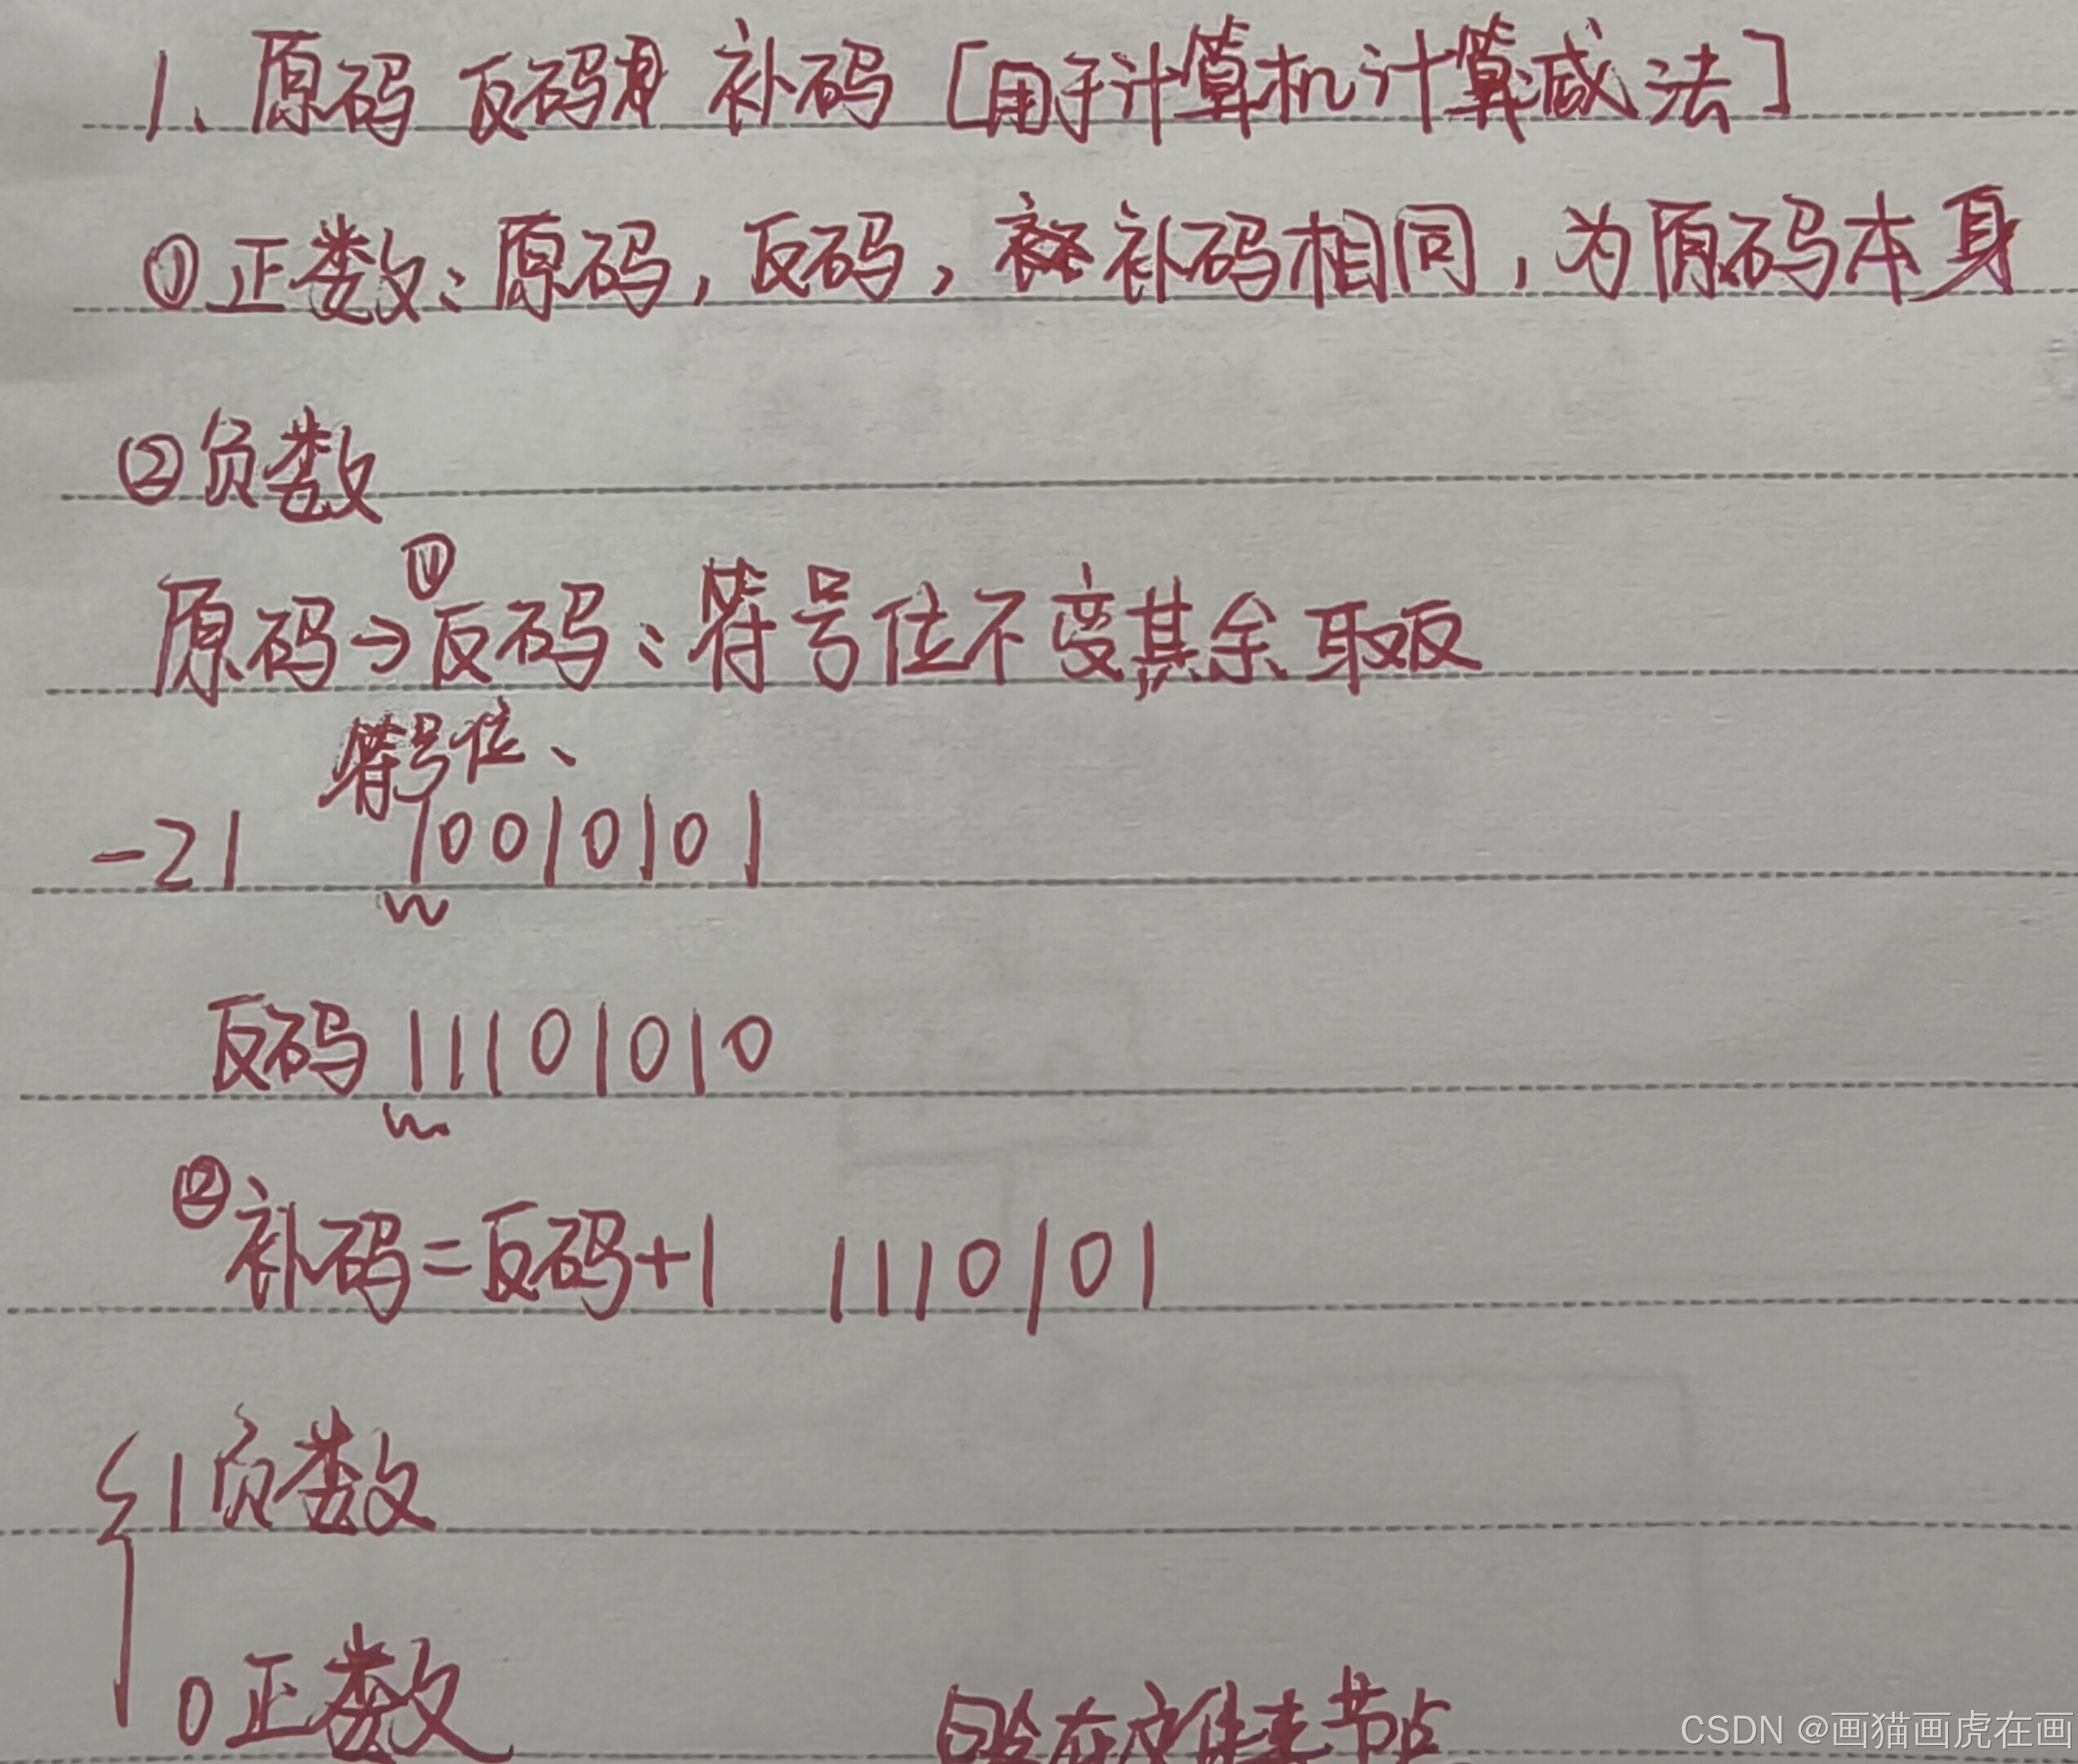 1、原码 反码 补码 [用于计算机计算减法]
①正数：原码，反码，补码相同，为原码本身
②负数
①
原码→反码：符号位不变其余取反
符号位、
-21 10010101
反码 11101010
②补码=反码+1 1110101
1负数
0正数
CSDN @画猫画虎在画